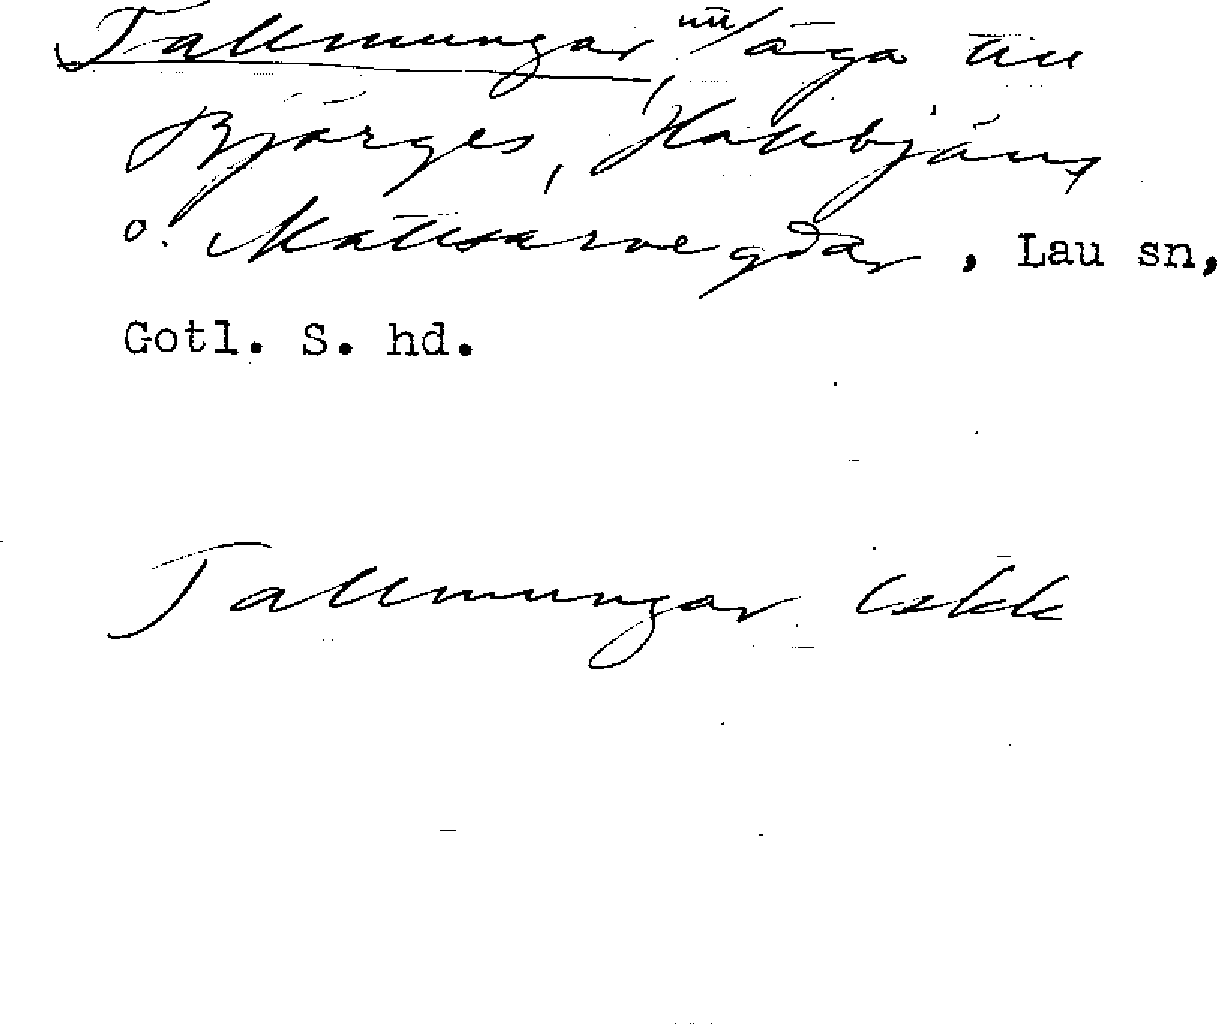 Tallmungar, äga till
Bjärges, Hallbjäns
o. Mattsarve gdar, Lau sn,
Gotl. S. hd.
Tallmungar